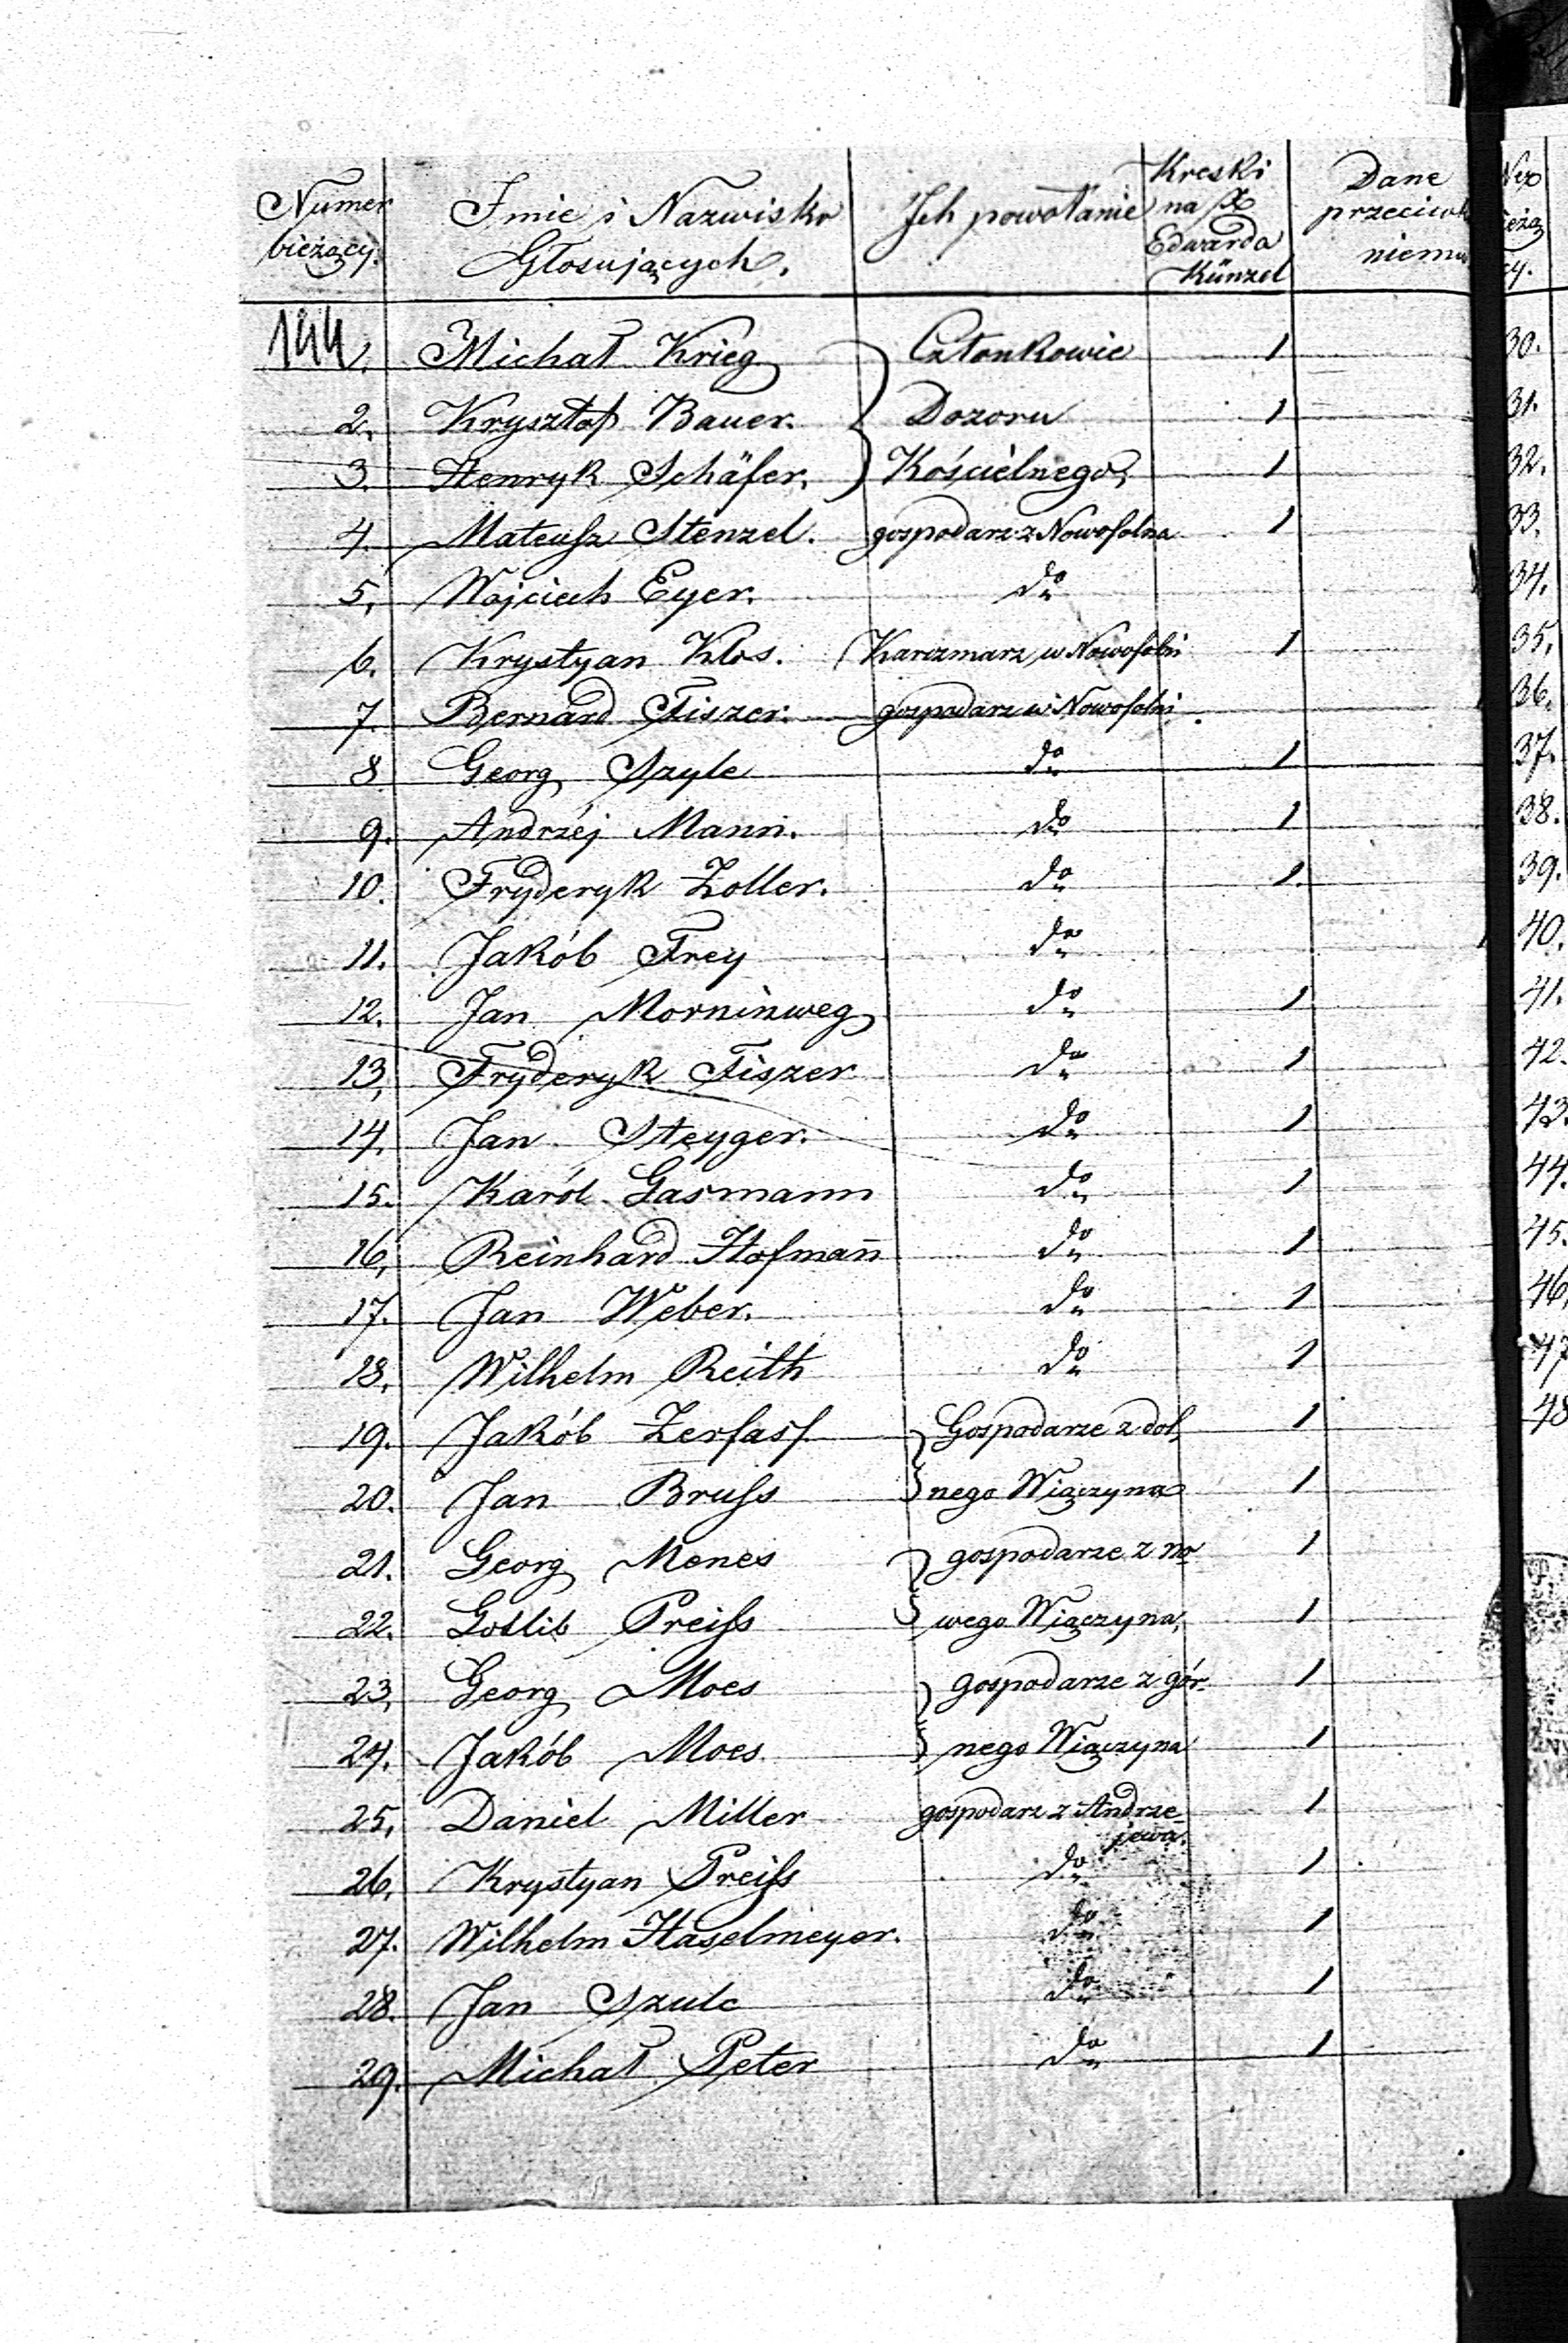 Numer bieżący. Imie i Nazwisko Głosujących. Ich powołanie Kreski na X Edwarda Künzel Dane przeciwko niemu
144
1. Michał Krieg Członkowie 1
2. Krysztof Bauer. Dozoru 1
3. Henryk Schäfer. Kościelnego. 1
4. Mateusz Stenzel. gospodarz z Nowosolna 1
5. Wojciech Eyer. do 1
6. Krystyan Klos. Karczmarz w Nowosolni 1
7. Bernard Fiszer. gospodarz w Nowosolni. 1
8 Georg Szyle do 1
9. Andrzéj Mann. do 1
10. Fryderyk Zoller. do 1.
11. Jakób Frey do 1
12. Jan Morninweg do 1
13, Fryderyk Fiszer do 1
14, Jan Steyger. do 1
15. Karól Gasmann do 1
16, Reinhard Hofmañ do 1
17. Jan Weber. do 1
18. Wilhelm Reith do 1
19. Jakób Zerfass Gospodarze z dol, 1
20. Jan Bruss nego Wiączyna 1
21. Georg Menes gospodarze z no 1
22. Gotlib Preiss wego Wiączyna, 1
23, Georg Moes gospodarze z gór- 1
24. Jakób Moes nego Wiączyna 1
25, Daniel Miller gospodarz z Andrze jewa. 1
26, Krystyan Preiss do 1
27. Wilhelm Haselmeyer. do 1
28. Jan Szulc do 1
29. Michał Peter do 1
30.
31.
32.
33.
34.
35.
36.
37.
38.
39.
40.
41.
42.
43.
44.
45.
46,
47
48